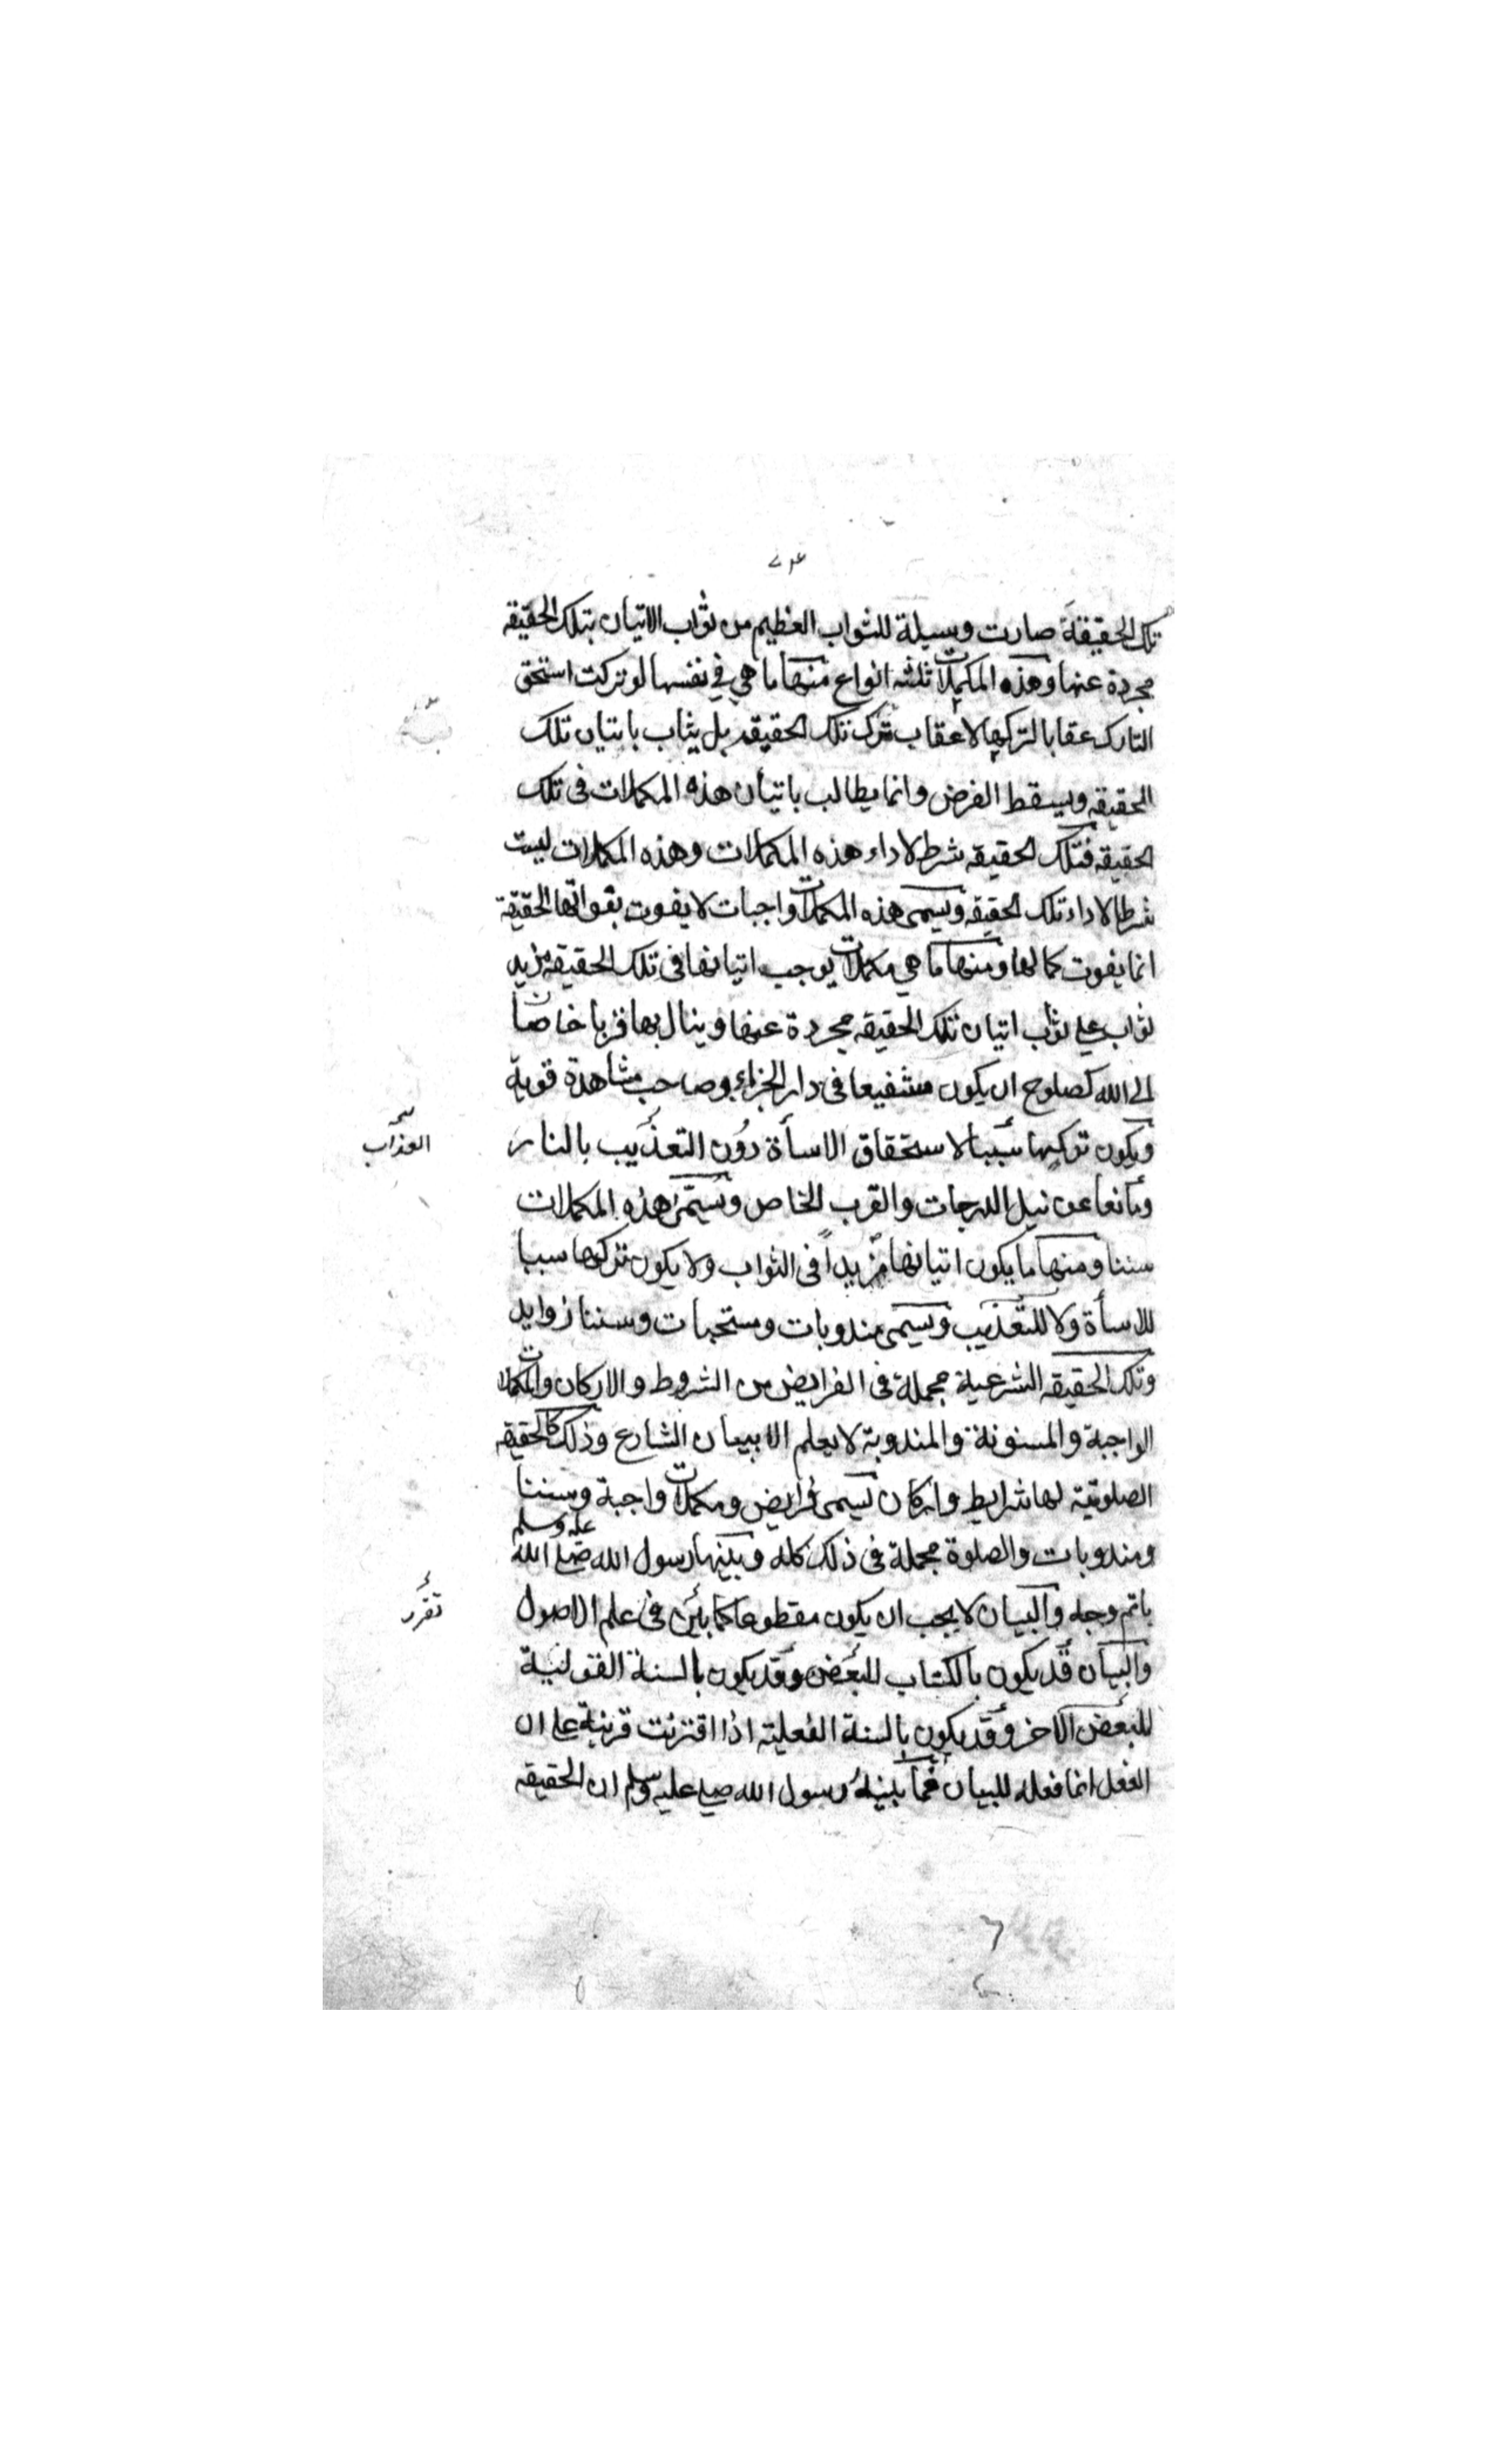 ٧٣
تلك الحقيقة صارت وسيلة للثواب العظيم من ثواب الاتيان بتلك الحقيقة
مجردة عنها وهذه المكملات ثلثه انواع منها ما هي في نفسها لو تركت استحق
التارك عقابا لتركها لا عقاب ترك تلك الحقيقه بل يثاب باتيان تلك
الحقيقه ويسقط الفرض وانما يطالب باتيان هذه المكملات فى تلك
الحقيقه فتلك الحقيقه شرط لاداء هذه المكملات وهذه المكملات ليست
شرطا لاداء تلك الحقيقه وتسمى هذه المكملات واجبات لا يفوت بفواتها الحقيقة
انما يفوت كمالها ومنها ما هي مكملات يوجب اتيانها فى تلك الحقيقه مزيد
ثواب علي ثواب اتيان تلك الحقيقه مجردة عنها وينال بها قربا خاصا
الى الله كصلوح ان يكون مشفيعا فى دار الجزاء وصاحب مشاهدة قوية
ويكون تركها سببا لاستحقاق الاسأة دون التعذيب بالنار
العذاب
ومانعا عن نيل الدرجات والقرب الخاص وتسمى هذه المكملات
سننا ومنها ما يكون اتيانها مزيداً فى الثواب ولا يكون تركها سببا
للاسأة ولا للتعذيب وتسمى مندوبات ومستحبات وسننا زوايد
وتلك الحقيقه الشرعية مجملة فى الفرايض من الشروط والاركان والمكملات
الواجبة والمسنونة والمندوبة لا يعلم الا ببيان الشارع وذلك كالحقيقه
الصلوتية لها شرايط واركان تسمى فرايض ومكملات واجبة وسننا
ومندوبات والصلوة مجملة فى ذلك كله وبينها رسول الله صلى الله عليه وسلم
باتم وجه والبيان لا يجب ان يكون مقطوعا كما بين فى علم الاصول
تقرر
والبيان قد يكون بالكتاب للبعض وقد يكون بالسنة القولية
للبعض الاخر وقد يكون بالسنة الفعلية اذا اقترنت قرينة على ان
الفعل انما فعله للبيان فما بينه رسول الله صلي عليه وسلم ان الحقيقه